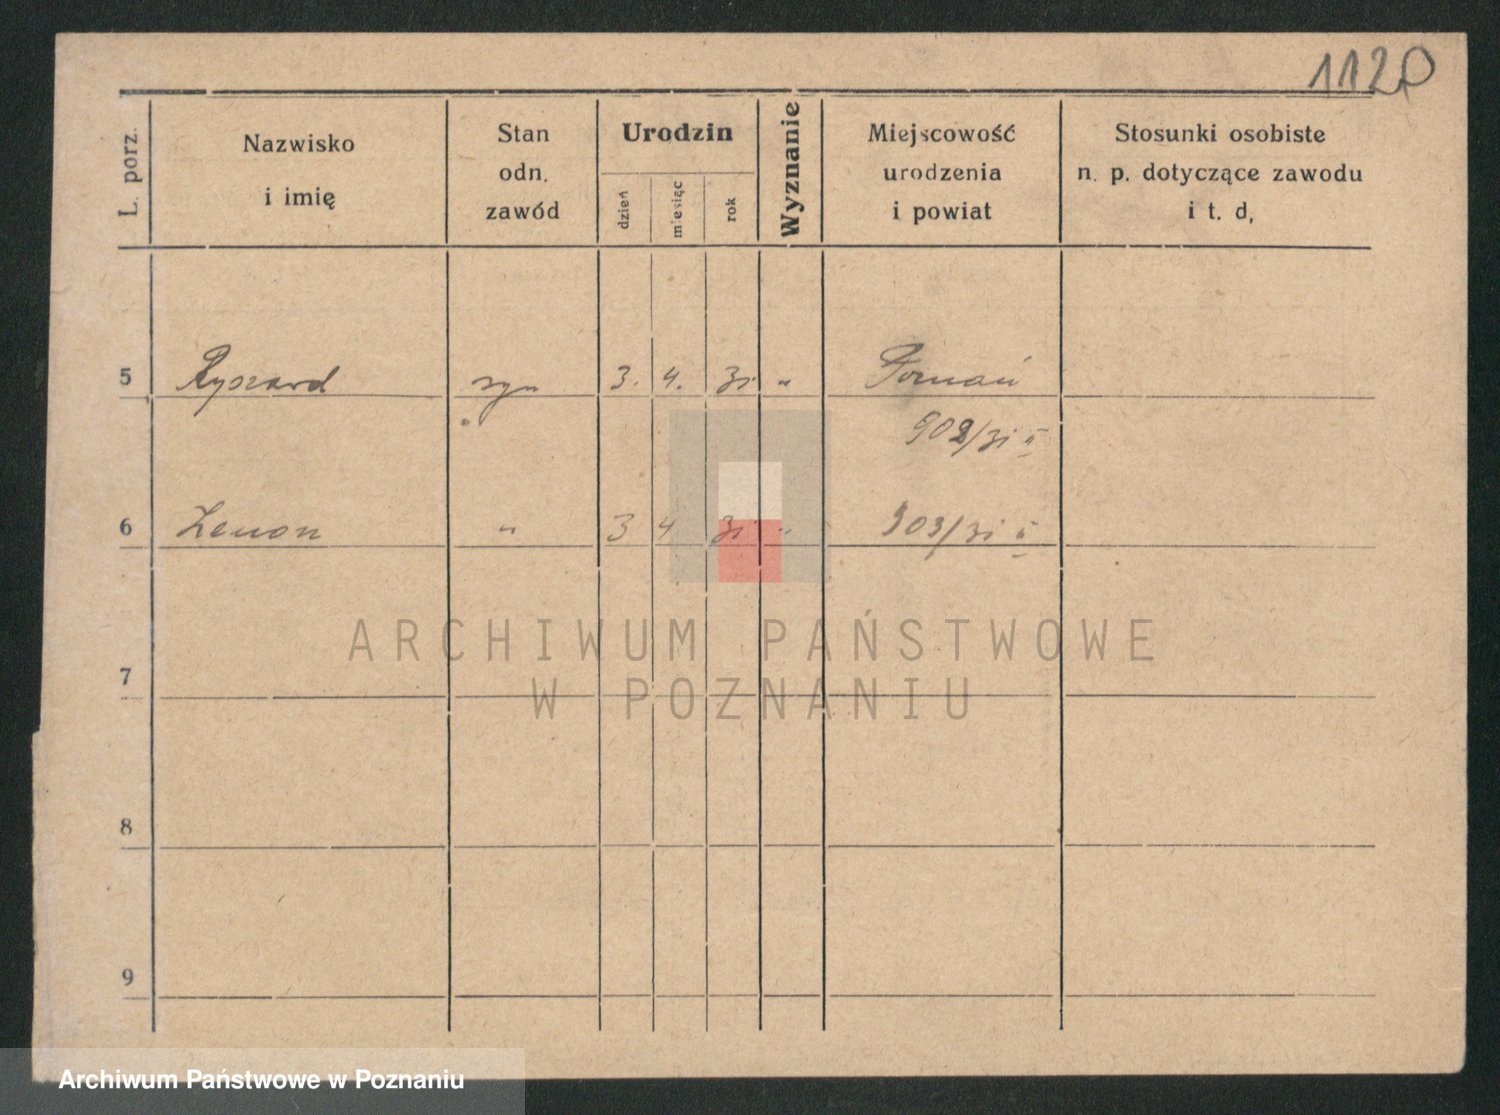 112
L. porz. Nazwisko i imię Stan odn. zawód Urodzin dzień miesiąc rok Wyznanie Miejscowość urodzenia i powiat Stosunki osobiste n. p. dotyczące zawodu i t. d,
5 Ryszard syn 3. 4. 31 " Poznań
902/31 II
6 Zenon " 3 4 31 " 903/31 II
ARCHIWUM PAŃSTWOWE
W POZNANIU
7
8
9
Archiwum Państwowe w Poznaniu